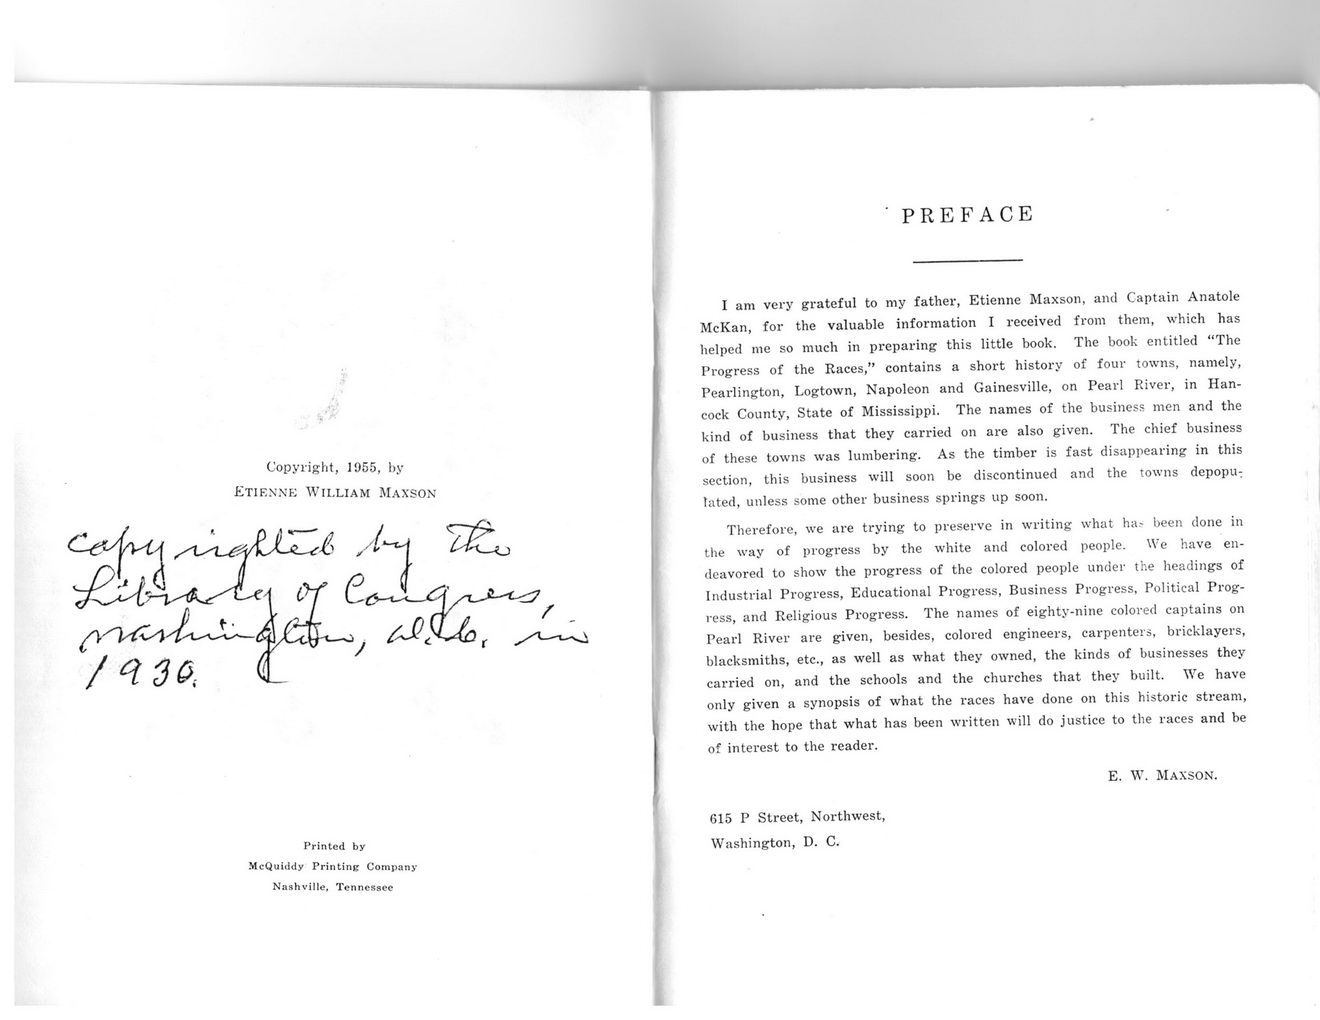 Copyright, 1955, by
ETIENNE WILLIAM MAXSON
copyrighted by the
Library of Congress,
Washington, D.C. in
1930.
Printed by
McQuiddy Printing Company
Nashville, Tennessee
PREFACE
I am very grateful to my father, Etienne Maxson, and Captain Anatole
McKan, for the valuable information I received from them, which has
helped me so much in preparing this little book. The book entitled “The
Progress of the Races,” contains a short history of four towns, namely,
Pearlington, Logtown, Napoleon and Gainesville, on Pearl River, in Han-
cock County, State of Mississippi. The names of the business men and the
kind of business that they carried on are also given. The chief business
of these towns was lumbering. As the timber is fast disappearing in this
section, this business will soon be discontinued and the towns depopu-
lated, unless some other business springs up soon.
Therefore, we are trying to preserve in writing what has been done in
the way of progress by the white and colored people. We have en-
deavored to show the progress of the colored people under the headings of
Industrial Progress, Educational Progress, Business Progress, Political Prog-
ress, and Religious Progress. The names of eighty-nine colored captains on
Pearl River are given, besides, colored engineers, carpenters, bricklayers,
blacksmiths, etc., as well as what they owned, the kinds of businesses they
carried on, and the schools and the churches that they built. We have
only given a synopsis of what the races have done on this historic stream,
with the hope that what has been written will do justice to the races and be
of interest to the reader.
E. W. MAXSON.
615 P Street, Northwest,
Washington, D. C.